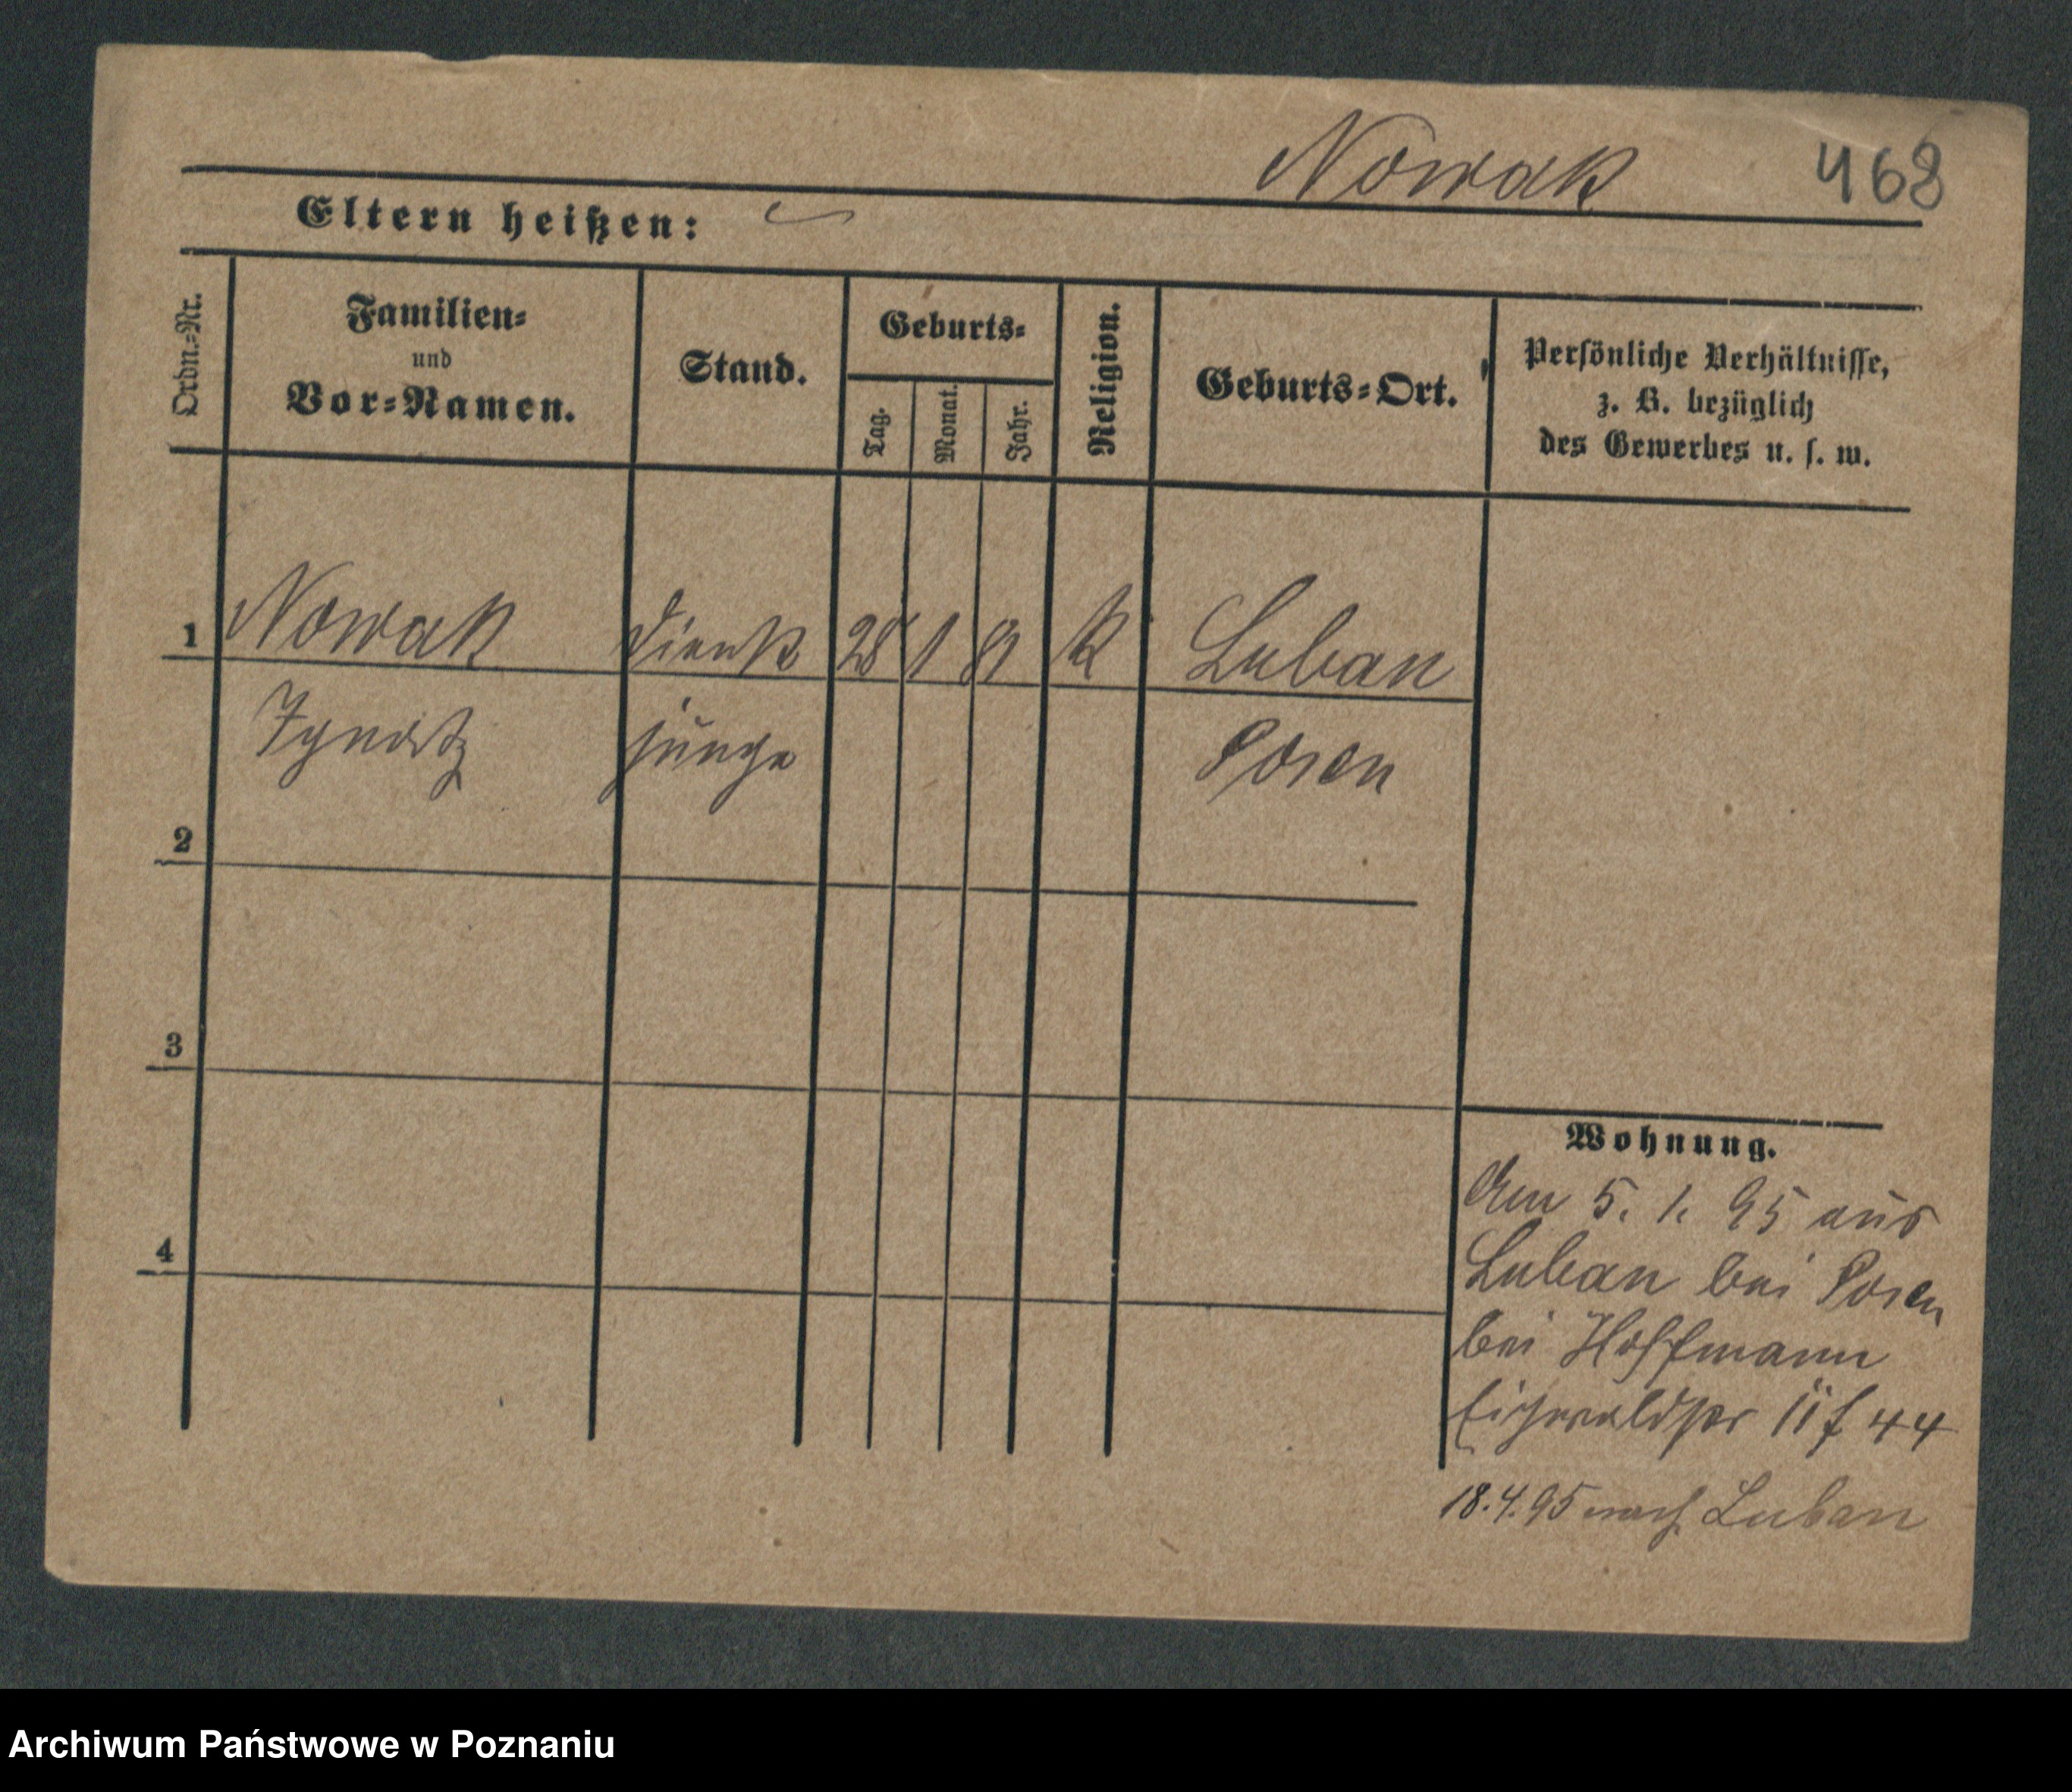 Nowak 468
Eltern heißen:
Ordn.-Nr.
Familien-
und
Vor-Namen.
Stand.
Geburts-
Tag.
Monat.
Jahr.
Religion.
Geburts-Ort.
Persönliche Verhältnisse,
z. B. bezüglich
des Gewerbes u. s. w.
1 Nowak Dienst 28 1 81 k Luban
Ignatz junge Posen
2
3
4
Wohnung.
Am 5. 1. 95 aus
Luban bei Posen
bei Hoffmann
44
18.4.95 nach Luban
Archiwum Państwowe w Poznaniu